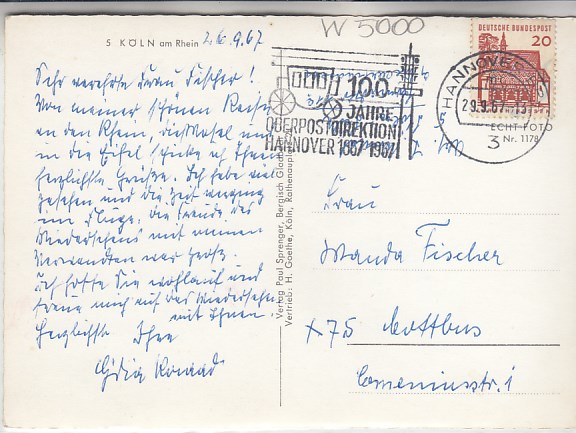 W 5000
5 KÖLN am Rhein 26.9.67
Sehr verehrte Frau Fischer!
Von meiner schönen Reise
an den Rhein, die Mosel und
in die Eifel schicke ich Ihnen
herzlichste Grüße. Ich habe viel
gesehen und die Zeit verging
im Fluge. Die Freude des
Wiedersehens mit meinen
Verwandten war groß.
Ich hoffe Sie wohlauf und
freue mich auf das Wiedersehn
mit Ihnen.
Herzlichst Ihre
Lydia Konrad
Verlag Paul Sprenger, Bergisch Gladbach
Vertrieb: H. Goethe, Köln, Rathenauplatz
100
JAHRE
OBERPOSTDIREKTION
HANNOVER 1867-1967
DEUTSCHE BUNDESPOST
20
HANNOVER
29.9.67-13
3
ECHT FOTO
Nr. 1178
Frau
Wanda Fischer
X75 Cottbus
Comeniusstr. 1